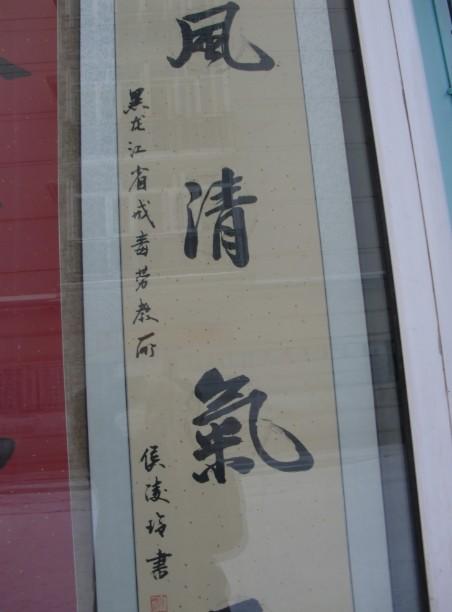 風清氣
黑龙江省戒毒劳教所
侯凌玲書